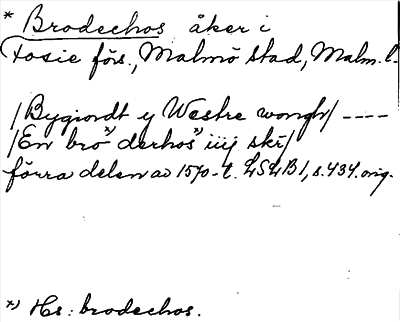 * Brodechos åker i
Fosie förs., Malmö stad, Malm. l.
/Bygiordt y Westre wongh/ ----
/En brö derhos *) iiij skr/
förra delen av 1570-t. LSLB 1, s. 434. orig.
*) Hs: brodechos.